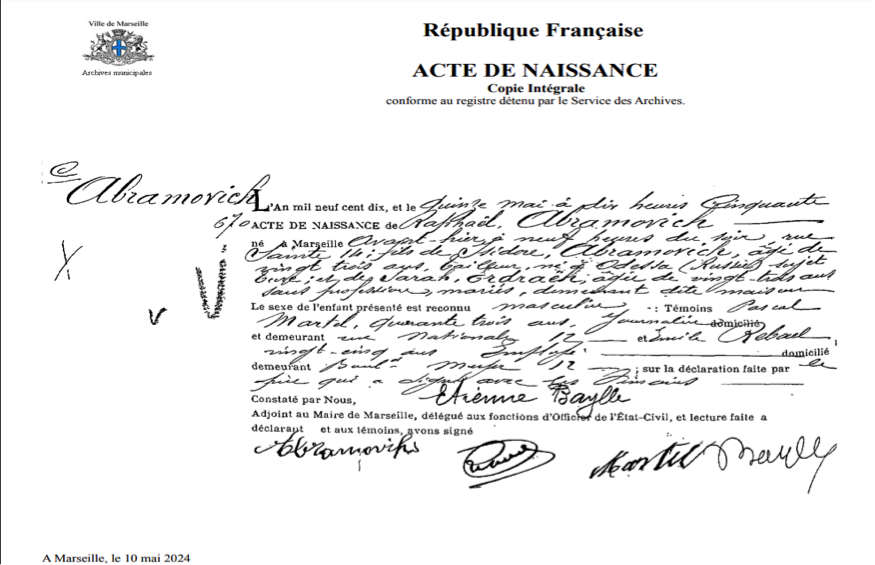 Ville de Marseille
Archives municipales
République Française
ACTE DE NAISSANCE
Copie Intégrale
conforme au registre détenu par le Service des Archives.
Abramovich
L'An mil neuf cent dix, et le quinze mai à dix heures cinquante
670 ACTE DE NAISSANCE de Raphaël, Abramovich
né à Marseille avant-hier à neuf heures du soir, rue
Sainte 14; fils de Isidore, Abramovich, âgé de
vingt trois ans, tailleur, né à Odessa (Russie) sujet
; et de Sarah, âgée de vingt-trois ans
sans profession, mariés, demeurant dite maison
Le sexe de l'enfant présenté est reconnu masculin -: Témoins Pascal
Martel, quarante trois ans, journalier domicilié
et demeurant rue Nationale 12 et Emile
vingt-cinq ans Employé domicilié
demeurant Boul. 12 ; sur la déclaration faite par le
père qui a signé avec les témoins
Constaté par Nous, Etienne Baylle
Adjoint au Maire de Marseille, délégué aux fonctions d'Officier de l'État-Civil, et lecture faite a
déclarant et aux témoins, avons signé
Martel Baylle
A Marseille, le 10 mai 2024